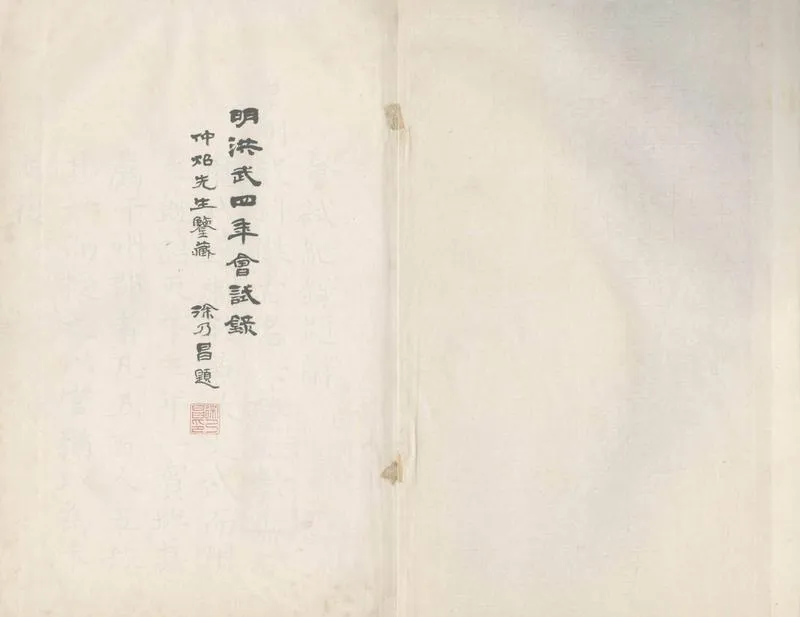 明洪武四年會試錄
仲炤先生鑒藏
徐乃昌題
徐乃昌印